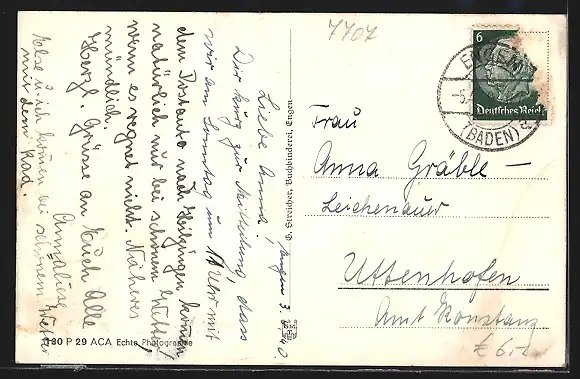 7707
6
ENGEN
Deutsches Reich
(BADEN)
Engen 3. 8. 40
Liebe Anna!
Nur kurz zur Mitteilung, dass
wir am Sonntag um Uhr mit
dem Postauto nach kommen
natürlich nur bei schönem Wetter,
wenn es regnet nicht. Näheres
mündlich.
Herzl. Grüsse an Euch Alle
Else u. ich kommen bei schönem Wetter
mit dem Rad.
G. Streicher, Buchbinderei, Engen
Frau
Anna Gräble —
Leichenauer
Uttenhofen
Amt Konstanz
€ 6,-
130 P 29 ACA Echte Photographie